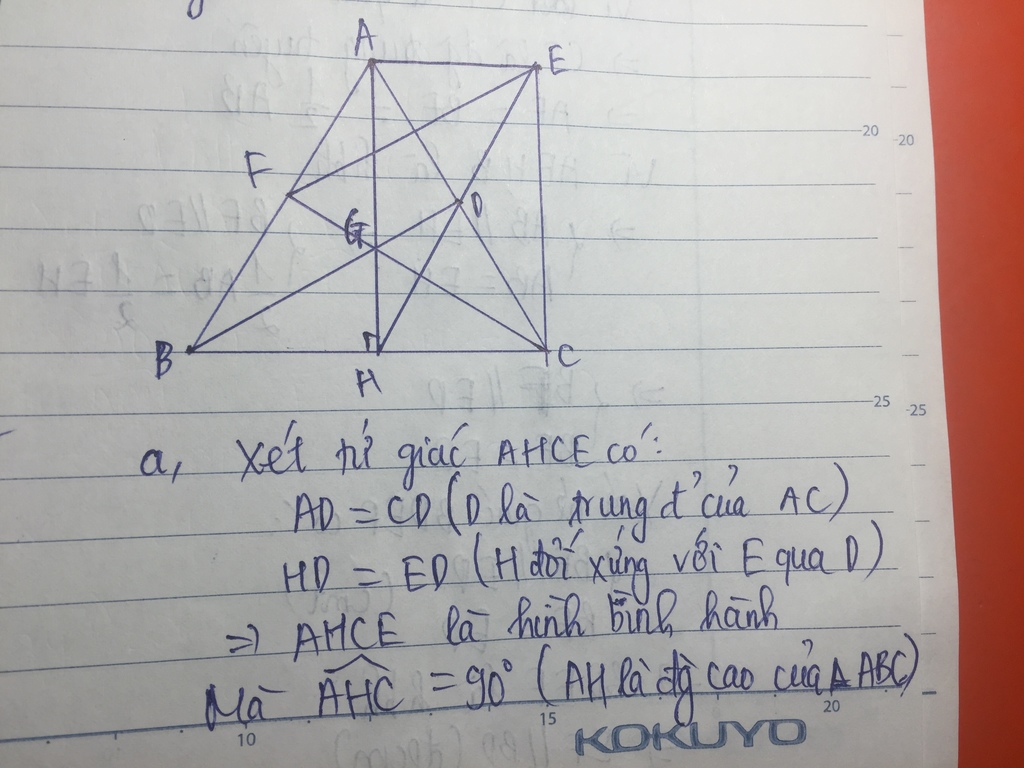 A
E
20 20
F
D
G
B
H
C
25 25
a, Xét tứ giác AHCE có:
AD = CD (D là trung đ' của AC)
HD = ED (H đối xứng với E qua D)
=> AHCE là hình bình hành
Mà AHC = 90° (AH là đg cao của Δ ABC)
10 15 20
KOKUYO